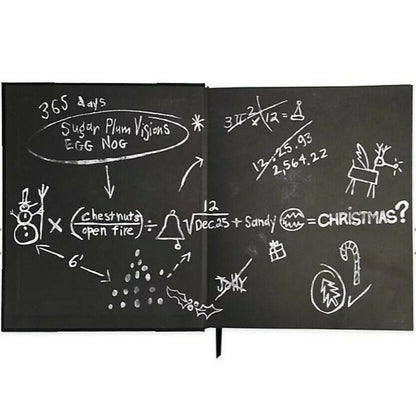 365 days
Sugar Plum Visions *
EGG NOG
12 =
12.25.93
2,564.22
× (chestnuts ÷ 12
open fire) √Dec.25 + Sandy = CHRISTMAS?
6'